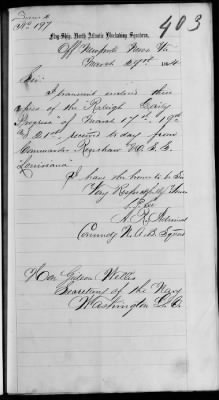 403
No 197
Flag-Ship, North Atlantic Blockading Squadron,
Off Newport News Va.
March 29th 1864.
Sir:
I transmit enclosed three
copies of the Raleigh Daily
Progress of March 17th, 19th
and 21st received to day from
Commander Renshaw U.S.S.
Louisiana.
I have the honor to be Sir
Very Respectfully Yours
Comdg N. A. B. Squad
Hon Gideon Welles
Secretary of the Navy
Washington D.C.